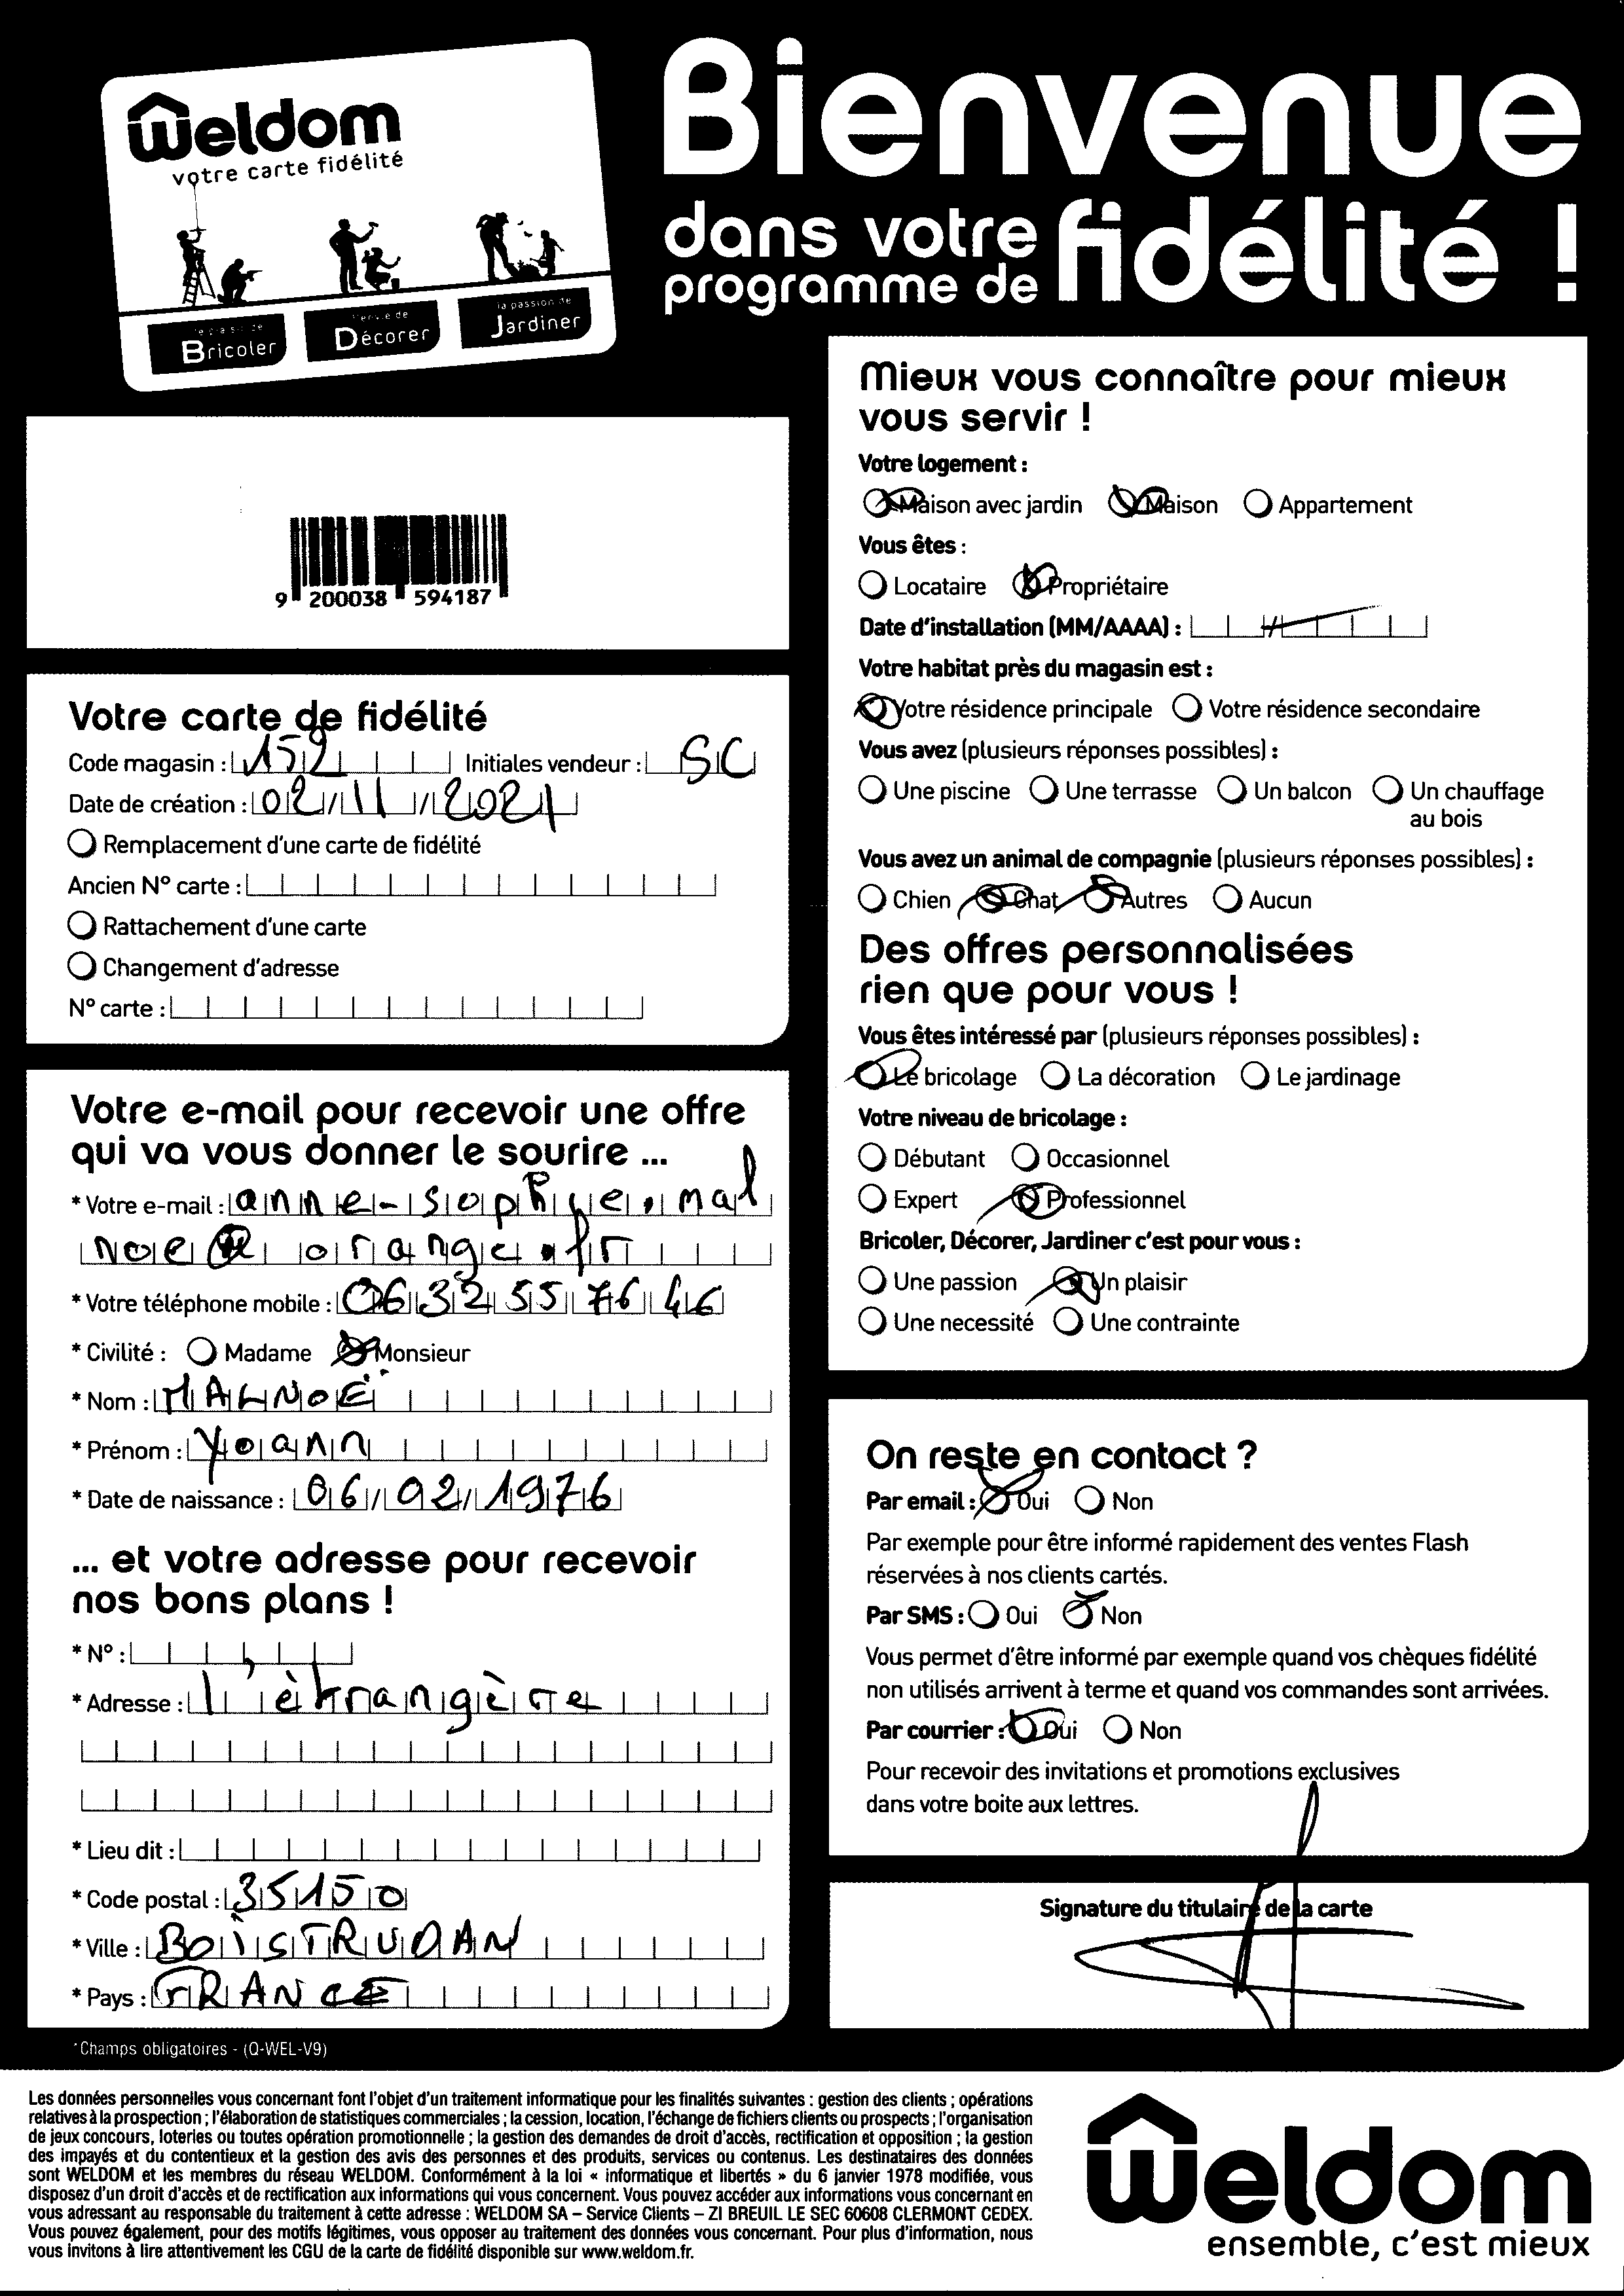 Weldom
votre carte fidélité
Bricoler
l'envie de
Décorer
la passion de
Jardiner
Bienvenue
dans votre
programme de fidélité !
9 200038 594187
Votre carte de fidélité
Code magasin : 152 Initiales vendeur : SC
Date de création : 02/11/2021
Remplacement d'une carte de fidélité
Ancien N° carte :
Rattachement d'une carte
Changement d'adresse
N° carte :
Votre e-mail pour recevoir une offre
qui va vous donner le sourire ...
* Votre e-mail : anne-sophie.mal
noe@orange.fr
* Votre téléphone mobile : 06 32 55 76 46
* Civilité : Madame Monsieur
* Nom : MALNOË
* Prénom : Yoann
* Date de naissance : 06/02/1976
... et votre adresse pour recevoir
nos bons plans !
* N° :
* Adresse : l'étrangère
* Lieu dit :
* Code postal : 35150
* Ville : BOISTRUDAN
* Pays : FRANCE
*Champs obligatoires - (Q-WEL-V9)
Mieux vous connaître pour mieux
vous servir !
Votre logement :
Maison avec jardin Maison Appartement
Vous êtes :
Locataire Propriétaire
Date d'installation (MM/AAAA) :
Votre habitat près du magasin est :
Votre résidence principale Votre résidence secondaire
Vous avez (plusieurs réponses possibles) :
Une piscine Une terrasse Un balcon Un chauffage
au bois
Vous avez un animal de compagnie (plusieurs réponses possibles) :
Chien Chat Autres Aucun
Des offres personnalisées
rien que pour vous !
Vous êtes intéressé par (plusieurs réponses possibles) :
Le bricolage La décoration Le jardinage
Votre niveau de bricolage :
Débutant Occasionnel
Expert Professionnel
Bricoler, Décorer, Jardiner c'est pour vous :
Une passion Un plaisir
Une necessité Une contrainte
On reste en contact ?
Par email : Oui Non
Par exemple pour être informé rapidement des ventes Flash
réservées à nos clients cartés.
Par SMS : Oui Non
Vous permet d'être informé par exemple quand vos chèques fidélité
non utilisés arrivent à terme et quand vos commandes sont arrivées.
Par courrier : Oui Non
Pour recevoir des invitations et promotions exclusives
dans votre boite aux lettres.
Signature du titulaire de la carte
Les données personnelles vous concernant font l'objet d'un traitement informatique pour les finalités suivantes : gestion des clients ; opérations
relatives à la prospection ; l'élaboration de statistiques commerciales ; la cession, location, l'échange de fichiers clients ou prospects ; l'organisation
de jeux concours, loteries ou toutes opération promotionnelle ; la gestion des demandes de droit d'accès, rectification et opposition ; la gestion
des impayés et du contentieux et la gestion des avis des personnes et des produits, services ou contenus. Les destinataires des données
sont WELDOM et les membres du réseau WELDOM. Conformément à la loi « informatique et libertés » du 6 janvier 1978 modifiée, vous
disposez d'un droit d'accès et de rectification aux informations qui vous concernent. Vous pouvez accéder aux informations vous concernant en
vous adressant au responsable du traitement à cette adresse : WELDOM SA – Service Clients – ZI BREUIL LE SEC 60608 CLERMONT CEDEX.
Vous pouvez également, pour des motifs légitimes, vous opposer au traitement des données vous concernant. Pour plus d'information, nous
vous invitons à lire attentivement les CGU de la carte de fidélité disponible sur www.weldom.fr.
Weldom
ensemble, c'est mieux